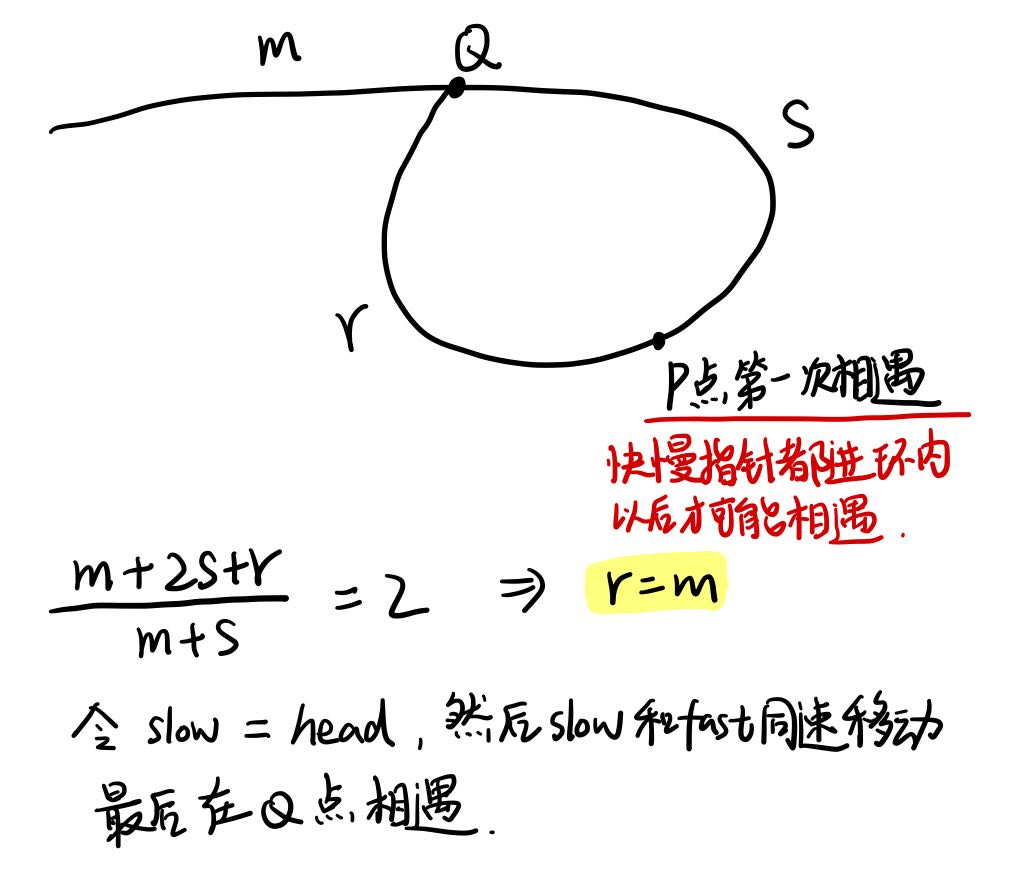 m
Q
S
r
P点第一次相遇
快慢指针都进环内
以后才可能相遇.
m+2S+r
m+S
= 2 ⇒ r=m
令 slow = head, 然后slow和fast同速移动
最后在Q点相遇.